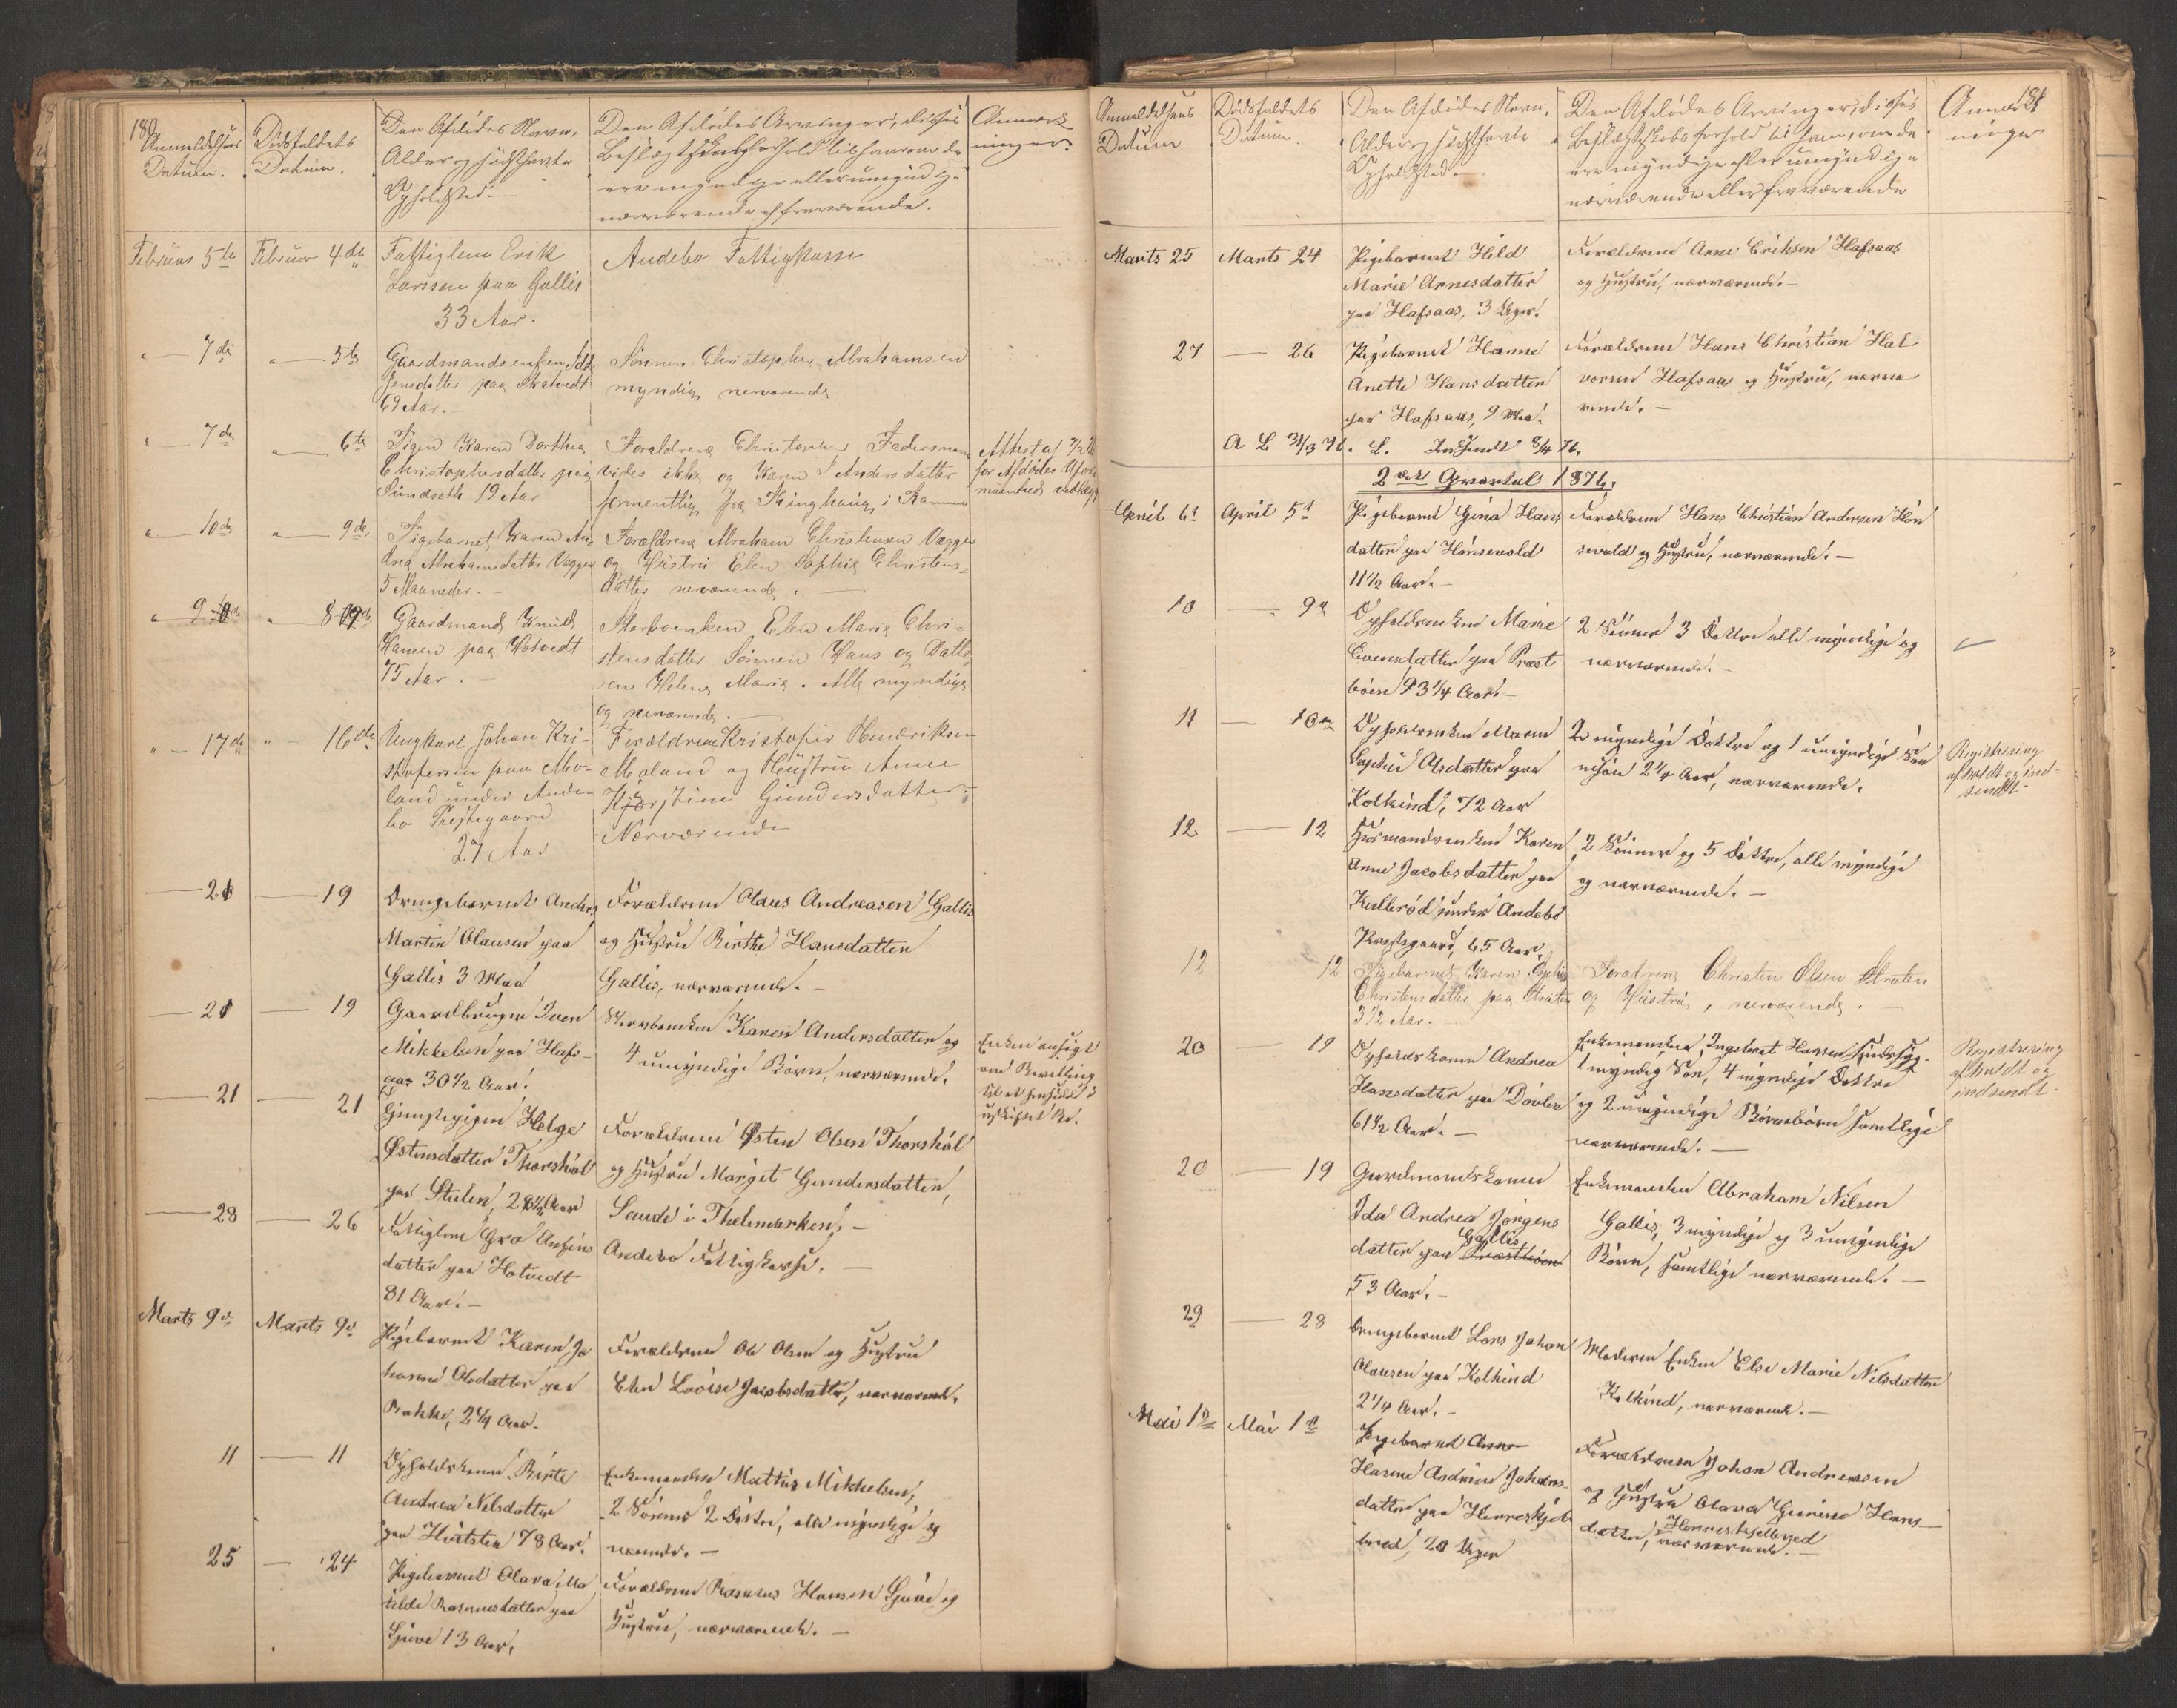 180
Anmeldelsens
Datum.
Dødsfaldets
Datum.
Den Afdødes Navn,
Alder og sidsthavte
Opholdsted.
Den Afdødes Arvinger, disses
Beslægtskabsforhold til ham, om de
ere myndige eller umyndige
nærværende el fraværende.
Anmærk
ninger.
Februar 5te
Februar 4de
Fattiglem Erik
Larssen paa Gallis
33 Aar.
Andebo Fattigkasse
" 7de
" 5te
Gaardmandsenken
Jensdatter paa
69 Aar.
Sønnen Christopher Abrahamsen
myndig nerværende
" 7de
" 6te
Pigen Karen Dorthea
Christophersdatter paa
Sundseth 19 Aar
Forældrene Christopher Fadersnavn
vides ikke og Karen Andersdatter
formentlig paa Kinghaug i Ramnes
Attest af
for Afdødes Ufor-
muenhed vedlagt
" 10de
" 9de
Pigebarnet Karen An-
drea Abrahamsdatter Vegger
5 Maaneder.
Forældrene Abraham Christensen Vegger
og Hustru Elen Sophie Christens-
datter nerværende.
" 9de
" 8de
Gaardmand Knud
Hansen paa Hotvedt
75 Aar.
Sterboenken Elen Marie Chri-
stensdatter Sønnen Hans og Datte-
ren Helene Marie. Alle myndige
og nerværende.
" 17de
" 16de
Ungkarl Johan Kri-
stofersen paa Mo-
land under Ande-
bo Prestegaard
27 Aar
Forældrene Kristofer Hendriksen
Moland og Hustru Anne
Kjerstine Gundersdatter.
Nærværende
21
19
Drengebarnet Anders
Martin Olausen paa
Gallis 3 Maa
Forældrene Olaus Andreasen Gallis
og Hustru Birthe Hansdatter
Gallis, nærværende.
21
19
Gaardbruger Iver
Mikkelsen paa Hafs-
aas 30 1/2 Aar.
Sterboenken Karen Andersdatter og
4 umyndige Børn, nærværende.
Enken ansøgt
om Bevilling
til at hensidde i
uskiftet Bo.
21
21
Helge
Østensdatter Thorshol
paa Stulen, 28 1/2 Aar
Forældrene Østen Olsen Thorshol
og Hustru Margit Gundersdatter,
Saude i Thelemarken.
28
26
Fattiglem Gro
datter paa Hotvedt
81 Aar.
Andebo Fattigkasse.
Marts 9de
Marts 9de
Pigebarnet Karen Jo
hanne Olsdatter paa
Bakke, 2 1/4 Aar.
Forældrene Ole Olsen og Hustru
Elen Lovise Jacobsdatter, nærværende.
11
11
Opholdskone Birte
Andrea Nilsdatter
paa 78 Aar.
Enkemanden Mathis Mikkelsen,
2 Sønner 2 Døttre, alle myndige og
nærvær.
25
24
Pigebarnet Olava Ma
tilde Rasmusdatter paa
Gjuve 13 Aar.
Forældrene Rasmus Hansen Gjuve og
Hustru, nærværende.
181
Anmeldelsens
Datum
Dødsfaldets
Datum.
Den Afdødes Navn,
Alder og sidsthavte
Opholdsted.
Den Afdødes Arvinger, disses
Beslægtskabsforhold til ham, om de
ere myndige eller umyndige
nærværende eller fraværende
Anmærk
ninger
Marts 25
Marts 24
Pigebarnet Hild
Marie Arnesdatter
paa Hafsaas, 3 Uger.
Forældrene Arne Eriksen Hafsaas
og Hustru, nærværende.
27
26
Pigebarnet Hanne
Anette Hansdatter
paa Hafsaas, 9 Maa.
Forældrene Hans Christian Hal
vorsen Hafsaas og Hustru, nærvæ
rende.
A L 31/3 76. L. Indsendt 8/4 76.
2det Qvartal 1876.
April 6te
April 5te
Pigebarnet Gina Hans
datter paa Hønsevold
11 1/2 Aar.
Forældrene Hans Christian Andersen Høn
sevold og Hustru, nærværende.
10
9de
Opholdsenken Marie
Evensdatter paa Præst
bøen 93 1/4 Aar.
2 Sønner 3 Døttre alle myndige og
nærværende.
11
10de
Opholdsenken Maren
Sophie Olsdatter paa
Kolkind, 72 Aar
2 myndige Døttre og 1 umyndige Søn
nesøn 2 1/4 Aar, nærværende.
Registrering
afholdt og ind-
sendt.
12
12
Husmandsenken Karen
Anne Jacobsdatter paa
Kullerød under Andebo
Præstegaard, 65 Aar.
2 Sønner og 5 Døttre, alle myndige
og nærværende.
12
12
Pigebarnet Karen Sophie
Christensdatter paa Straten
3 1/2 Aar.
Foreldrene Christen Olsen Straten
og Hustru, nerværende.
20
19
Opholdskonen Andrea
Hansdatter paa Døvlen
61 1/2 Aar.
Enkemanden Ingebret Hansen
1 myndig Søn, 4 myndige Døttre
og 2 umyndige Børnebørn samtlige
nærværende.
Registrering
afholdt og
indsendt.
20
19
Gaardmandskonen
Ida Andrea Jørgens
datter paa Præstbøen Gallis
53 Aar.
Enkemanden Abraham Nilsen
Gallis, 3 myndige og 3 umyndige
Børn, samtlige nærværende.
29
28
Drengebarnet Lars Johan
Olausen paa Kolkind
2 1/4 Aar.
Moderen Enken Else Marie Nilsdatter
Kolkind, nærværende.
Mai 1ste
Mai 1ste
Pigebarnet Anne
Hanne Andrine Johans-
datter paa Herreskjel-
bred, 20 Uger
Forældrene Johan Andreasen
og Hustru Olava Hans-
datter, Herreskjelbred
nærværende.